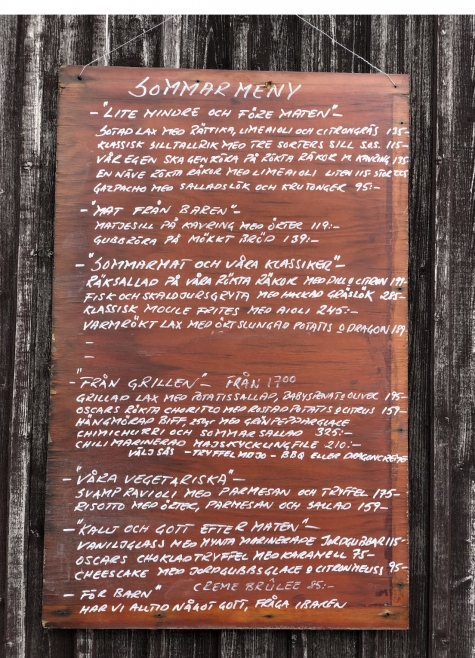 SOMMARMENY
- "LITE MINDRE OCH FÖRE MATEN" -
SOTAD LAX MED RÄTTIKA, LIMEAIOLI OCH CITRONGRÄS 135-
KLASSISK SILLTALLRIK MED TRE SORTERS SILL S.O.S. 115-
VÅR EGEN SKAGENRÖRA PÅ RÖKTA RÄKOR M. KAVRING 175-
EN NÄVE RÖKTA RÄKOR MED LIMEAIOLI LITEN 115- STOR
GAZPACHO MED SALLADSLÖK OCH KRUTONGER 95:-
- "MAT FRÅN BAREN" -
MATJESILL PÅ KAVRING MED ÖRTER 119:-
GUBBRÖRA PÅ MÖRKT BRÖD 139:-
- "SOMMARMAT OCH VÅRA KLASSIKER" -
RÄKSALLAD PÅ VÅRA RÖKTA RÄKOR MED DILL O CITRON
FISK OCH SKALDJURSGRYTA MED HACKAD GRÄSLÖK 285-
KLASSISK MOULE FRITES MED AIOLI 245:-
VARMRÖKT LAX MED ÖRTSLUNGAD POTATIS O DRAGON 189-
-
-
- "FRÅN GRILLEN" - FRÅN 1700
GRILLAD LAX MED POTATISSALLAD, BABYSPENAT O OLIVER 195-
OSCARS RÖKTA CHORITZO MED ROSTAD POTATIS O CITRUS 159-
HÄNGMÖRAD BIFF, 250gr MED GRÖNPEPPARGLACE
CHIMICHURRI OCH SOMMAR SALLAD 325:-
CHILIMARINERAD MAJSKYCKLINGFILE 210:-
VÄLJ SÅS - TRYFFELMOJO - BBQ ELLER DRAGONCREME
- "VÅRA VEGETARISKA" -
SVAMPRAVIOLI MED PARMESAN OCH TRYFFEL 175-
RISOTTO MED ÖRTER, PARMESAN OCH SALLAD 159-
- "KALLT OCH GOTT EFTER MATEN" -
VANILJGLASS MED MYNTA MARINERADE JORDGUBBAR 115-
OSCARS CHOKLADTRYFFEL MED KARAMELL 75-
CHEESCAKE MED JORDGUBBSGLACE O CITRONMELISS 95-
CREME BRÛLEE 85:-
- FÖR BARN"
HAR VI ALLTID NÅGOT GOTT, FRÅGA I BAREN